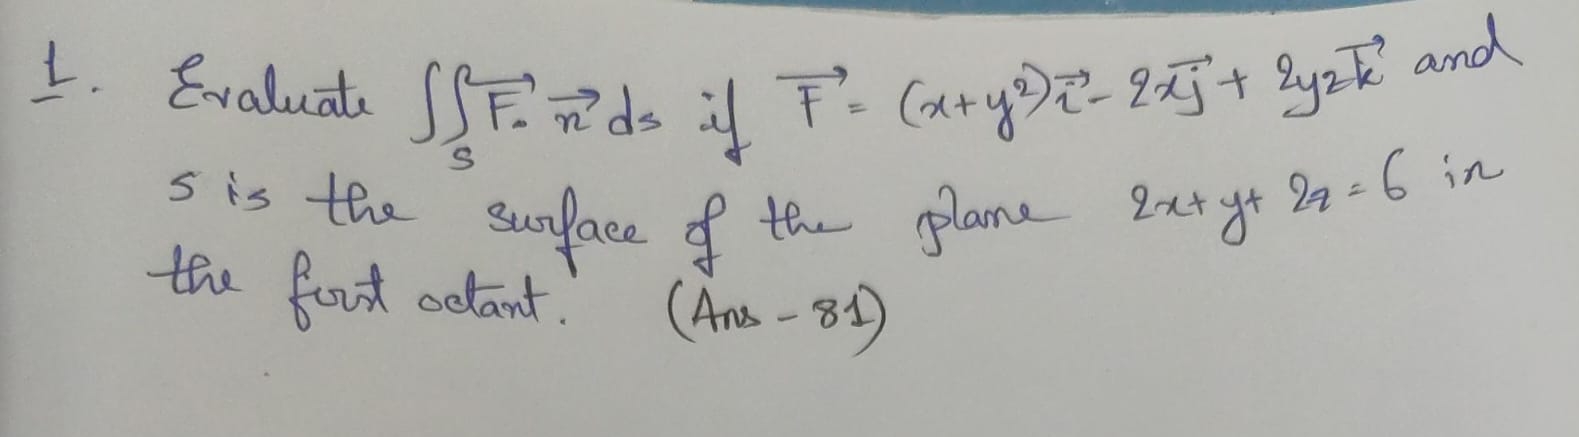 1. Evaluate ∬_S F⃗. n⃗ ds if F⃗ = (x+y²)i⃗ - 2xj⃗ + 2yzk⃗ and
s is the surface of the plane 2x+y+2z=6 in
the first octant. (Ans - 81)